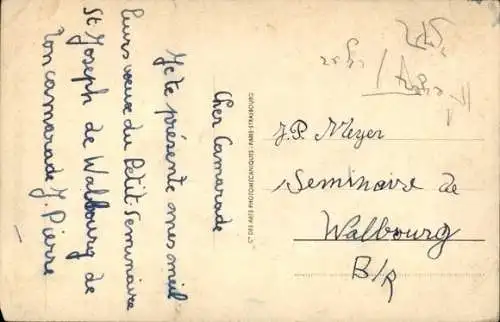 Cher Camarade
Je te présente mes meil
leurs vœux du Petit Seminaire
St Joseph de Walbourg de
ton camarade J. Pierre
CIE DES ARTS PHOTOMECANIQUES - PARIS-STRASBOURG
J.P. Meyer
Seminaire de
Walbourg
B/R